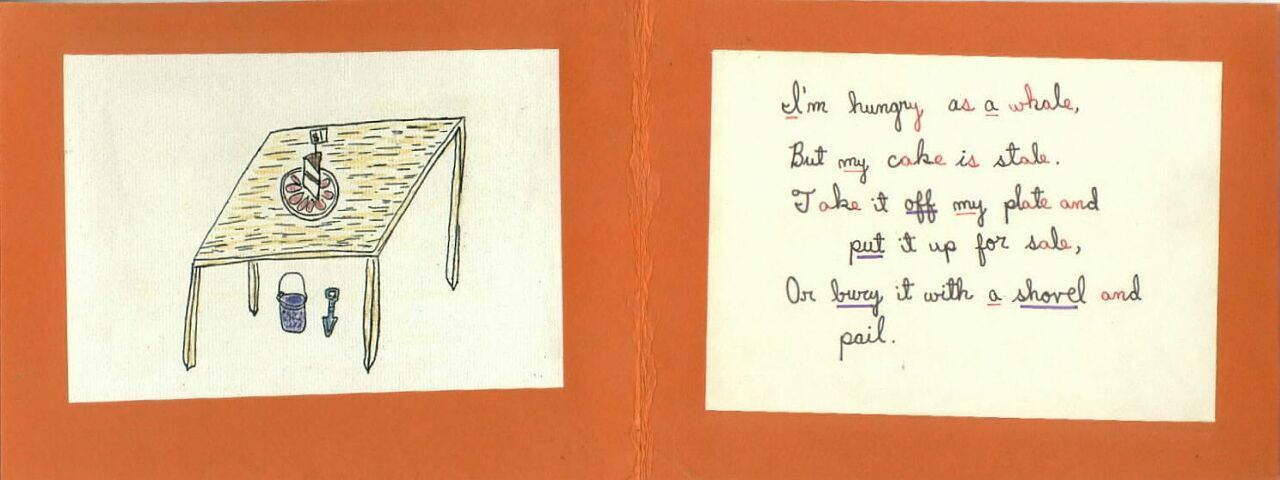 $1
I'm hungry as a whale,
But my cake is stale.
Take it off my plate and
put it up for sale,
Or bury it with a shovel and
pail.